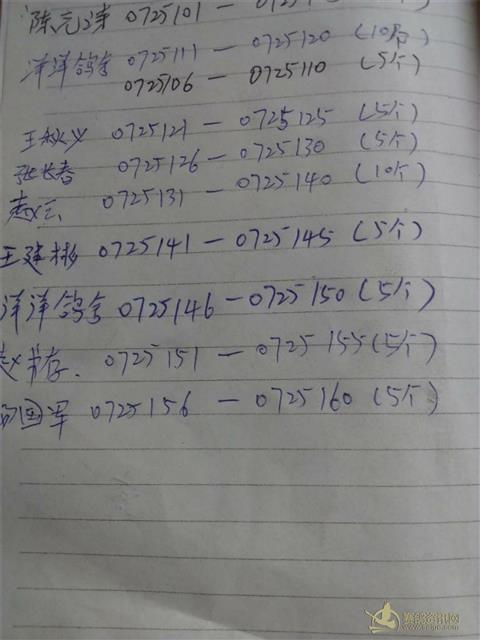 陈元涛 0725101 — 0725
洋洋鸽舍 0725111 — 0725120 (10个)
0725106 — 0725110 (5个)
王秋义 0725121 — 0725125 (5个)
张长春 0725126 — 0725130 (5个)
0725131 — 0725140 (10个)
王建彬 0725141 — 0725145 (5个)
洋洋鸽舍 0725146 — 0725150 (5个)
赵书存. 0725151 — 0725155 (5个)
国军 0725156 — 0725160 (5个)
赛鸽资讯网